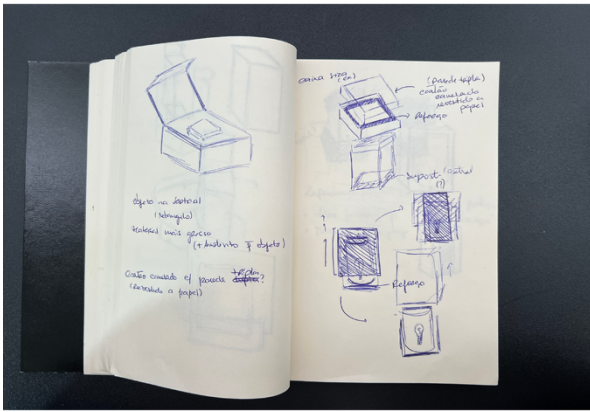 objeto na vertical
(retangulo)
Material mais grosso
(+ distinto q objeto)
Cartão canelado c/ parede tripla?
(revestido a papel)
caixa
(parede tripla)
cartão
canelado
revestido a
papel
Reforço
Suporte
(?)
Reforço